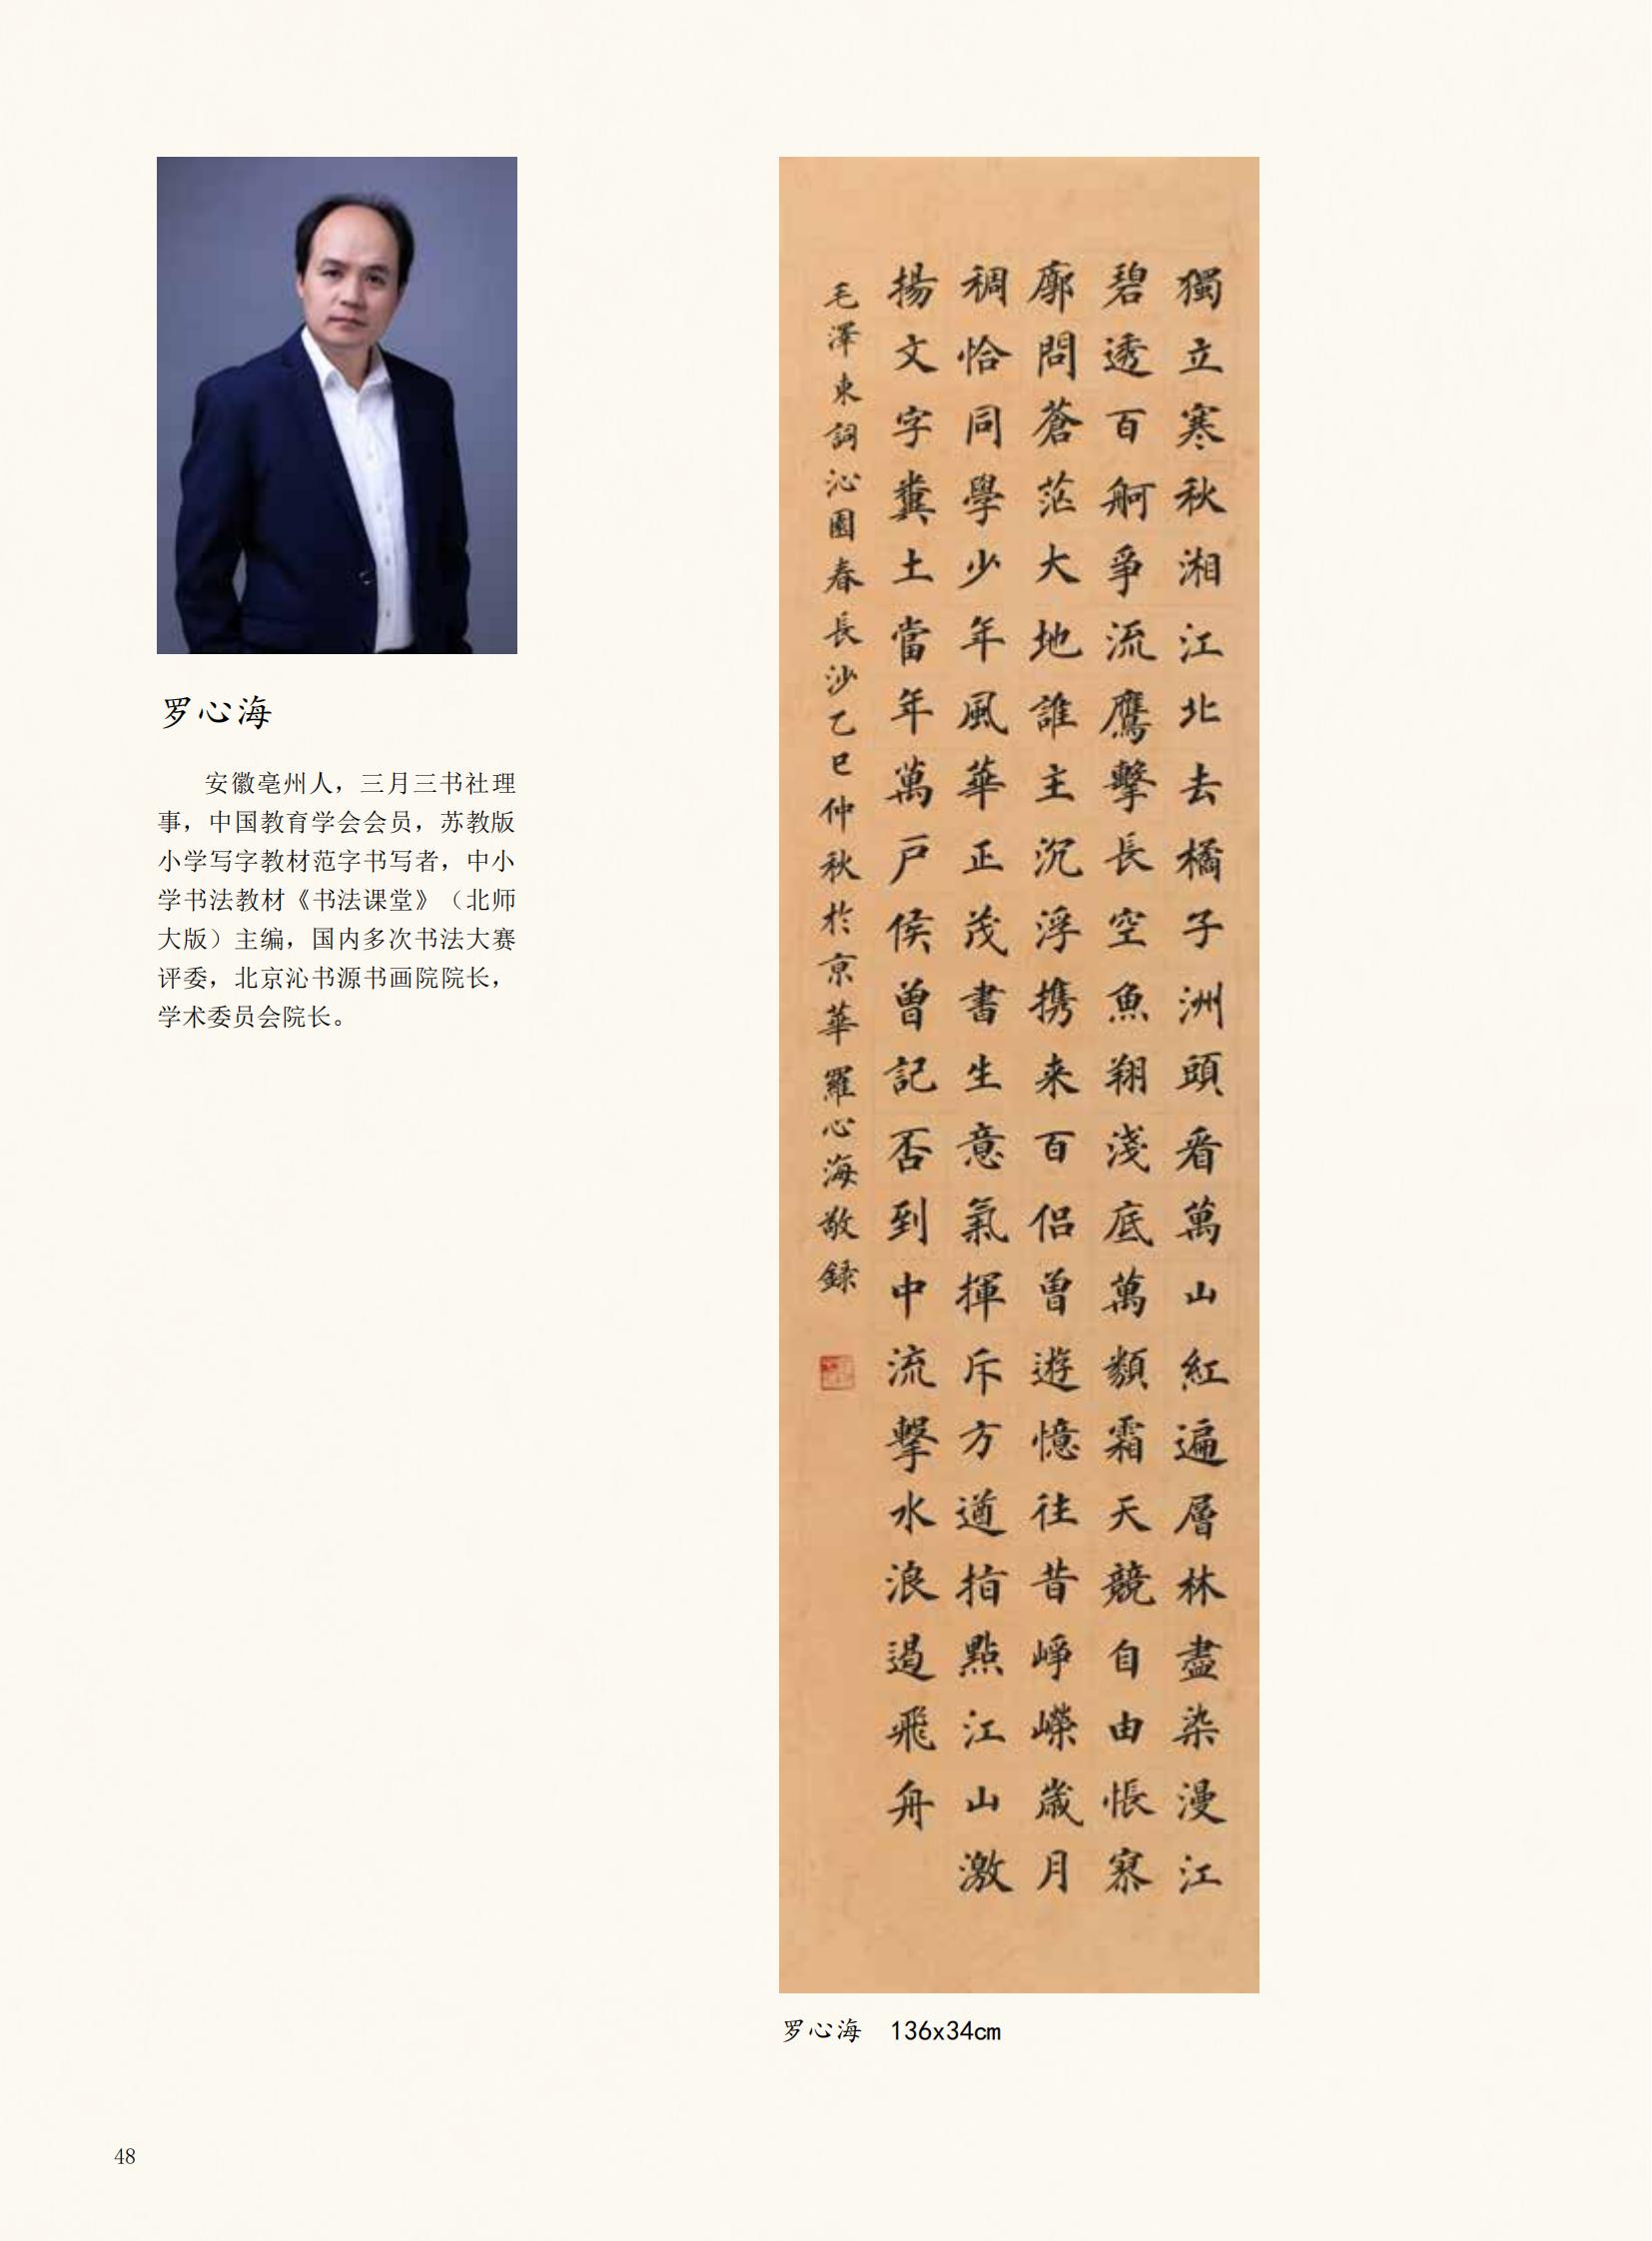 罗心海
安徽亳州人，三月三书社理
事，中国教育学会会员，苏教版
小学写字教材范字书写者，中小
学书法教材《书法课堂》（北师
大版）主编，国内多次书法大赛
评委，北京沁书源书画院院长，
学术委员会院长。
獨立寒秋湘江北去橘子洲頭看萬山紅遍層林盡染漫江
碧透百舸爭流鷹擊長空魚翔淺底萬類霜天競自由悵寥
廓問蒼茫大地誰主沉浮携来百侣曾遊憶往昔崢嶸歲月
稠恰同學少年風華正茂書生意氣揮斥方遒指點江山激
揚文字糞土當年萬戶侯曾記否到中流擊水浪遏飛舟
毛澤東詞沁園春長沙乙巳仲秋於京華羅心海敬録
罗心海 136x34cm
48